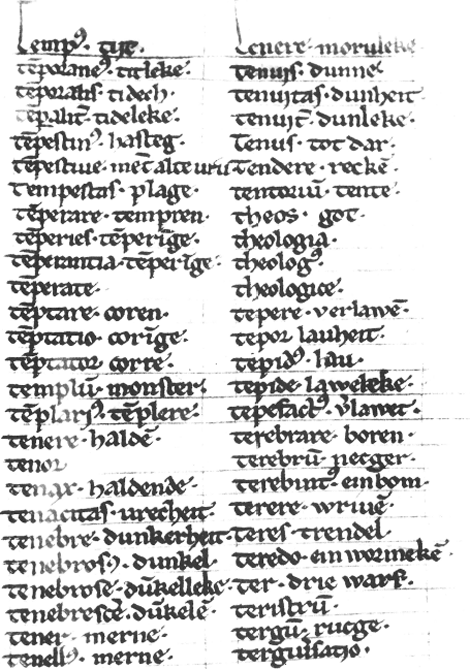 Tempꝰ· tije·
tēporaneꝰ· titleke·
tēporalis· tidech·
tēpalit̄· tideleke·
tēpestiuꝰ· hasteg·
tēpestiue· met̄ alte
Tempestas· plage·
tēperare· tempren·
tēperies· tēperīge·
tēperantia· tēperīge·
tēperate·
tēptare· coren·
tēptatio· corīge·
tēptator· corre·
templū· monster·
tēplarꝰ· tēplere·
tenere· haldē·
tenor
tenax· haldende·
tenacitas· vrecheit·
tenebre· dunkerheit·
tenebrosꝰ· dunkel·
tenebrose· dūkelleke·
tenebresce· dūkelē·
tener· merne·
tenellꝰ· merne·
Tenere· moruleke·
tenuis· dunne
tenuitas· dunheit·
tenuit̄· dunleke·
Tenus· tot dar·
Tendere· reckē·
tentoriū· tente·
theos· got·
theologia·
theologꝰ·
theologice·
tepere· verlawē·
tepor lauheit·
tepidꝰ· lau·
tepide· laweleke·
tepefactꝰ· v̄lawet·
terebrare· boren·
terebrū· neeger·
terebintꝰ· einbom·
terere· wriuē·
teres· trendel
teredo· ein wormekē·
ter· drie warf·
teristrū·
tergū· rucge·
terguisatio·